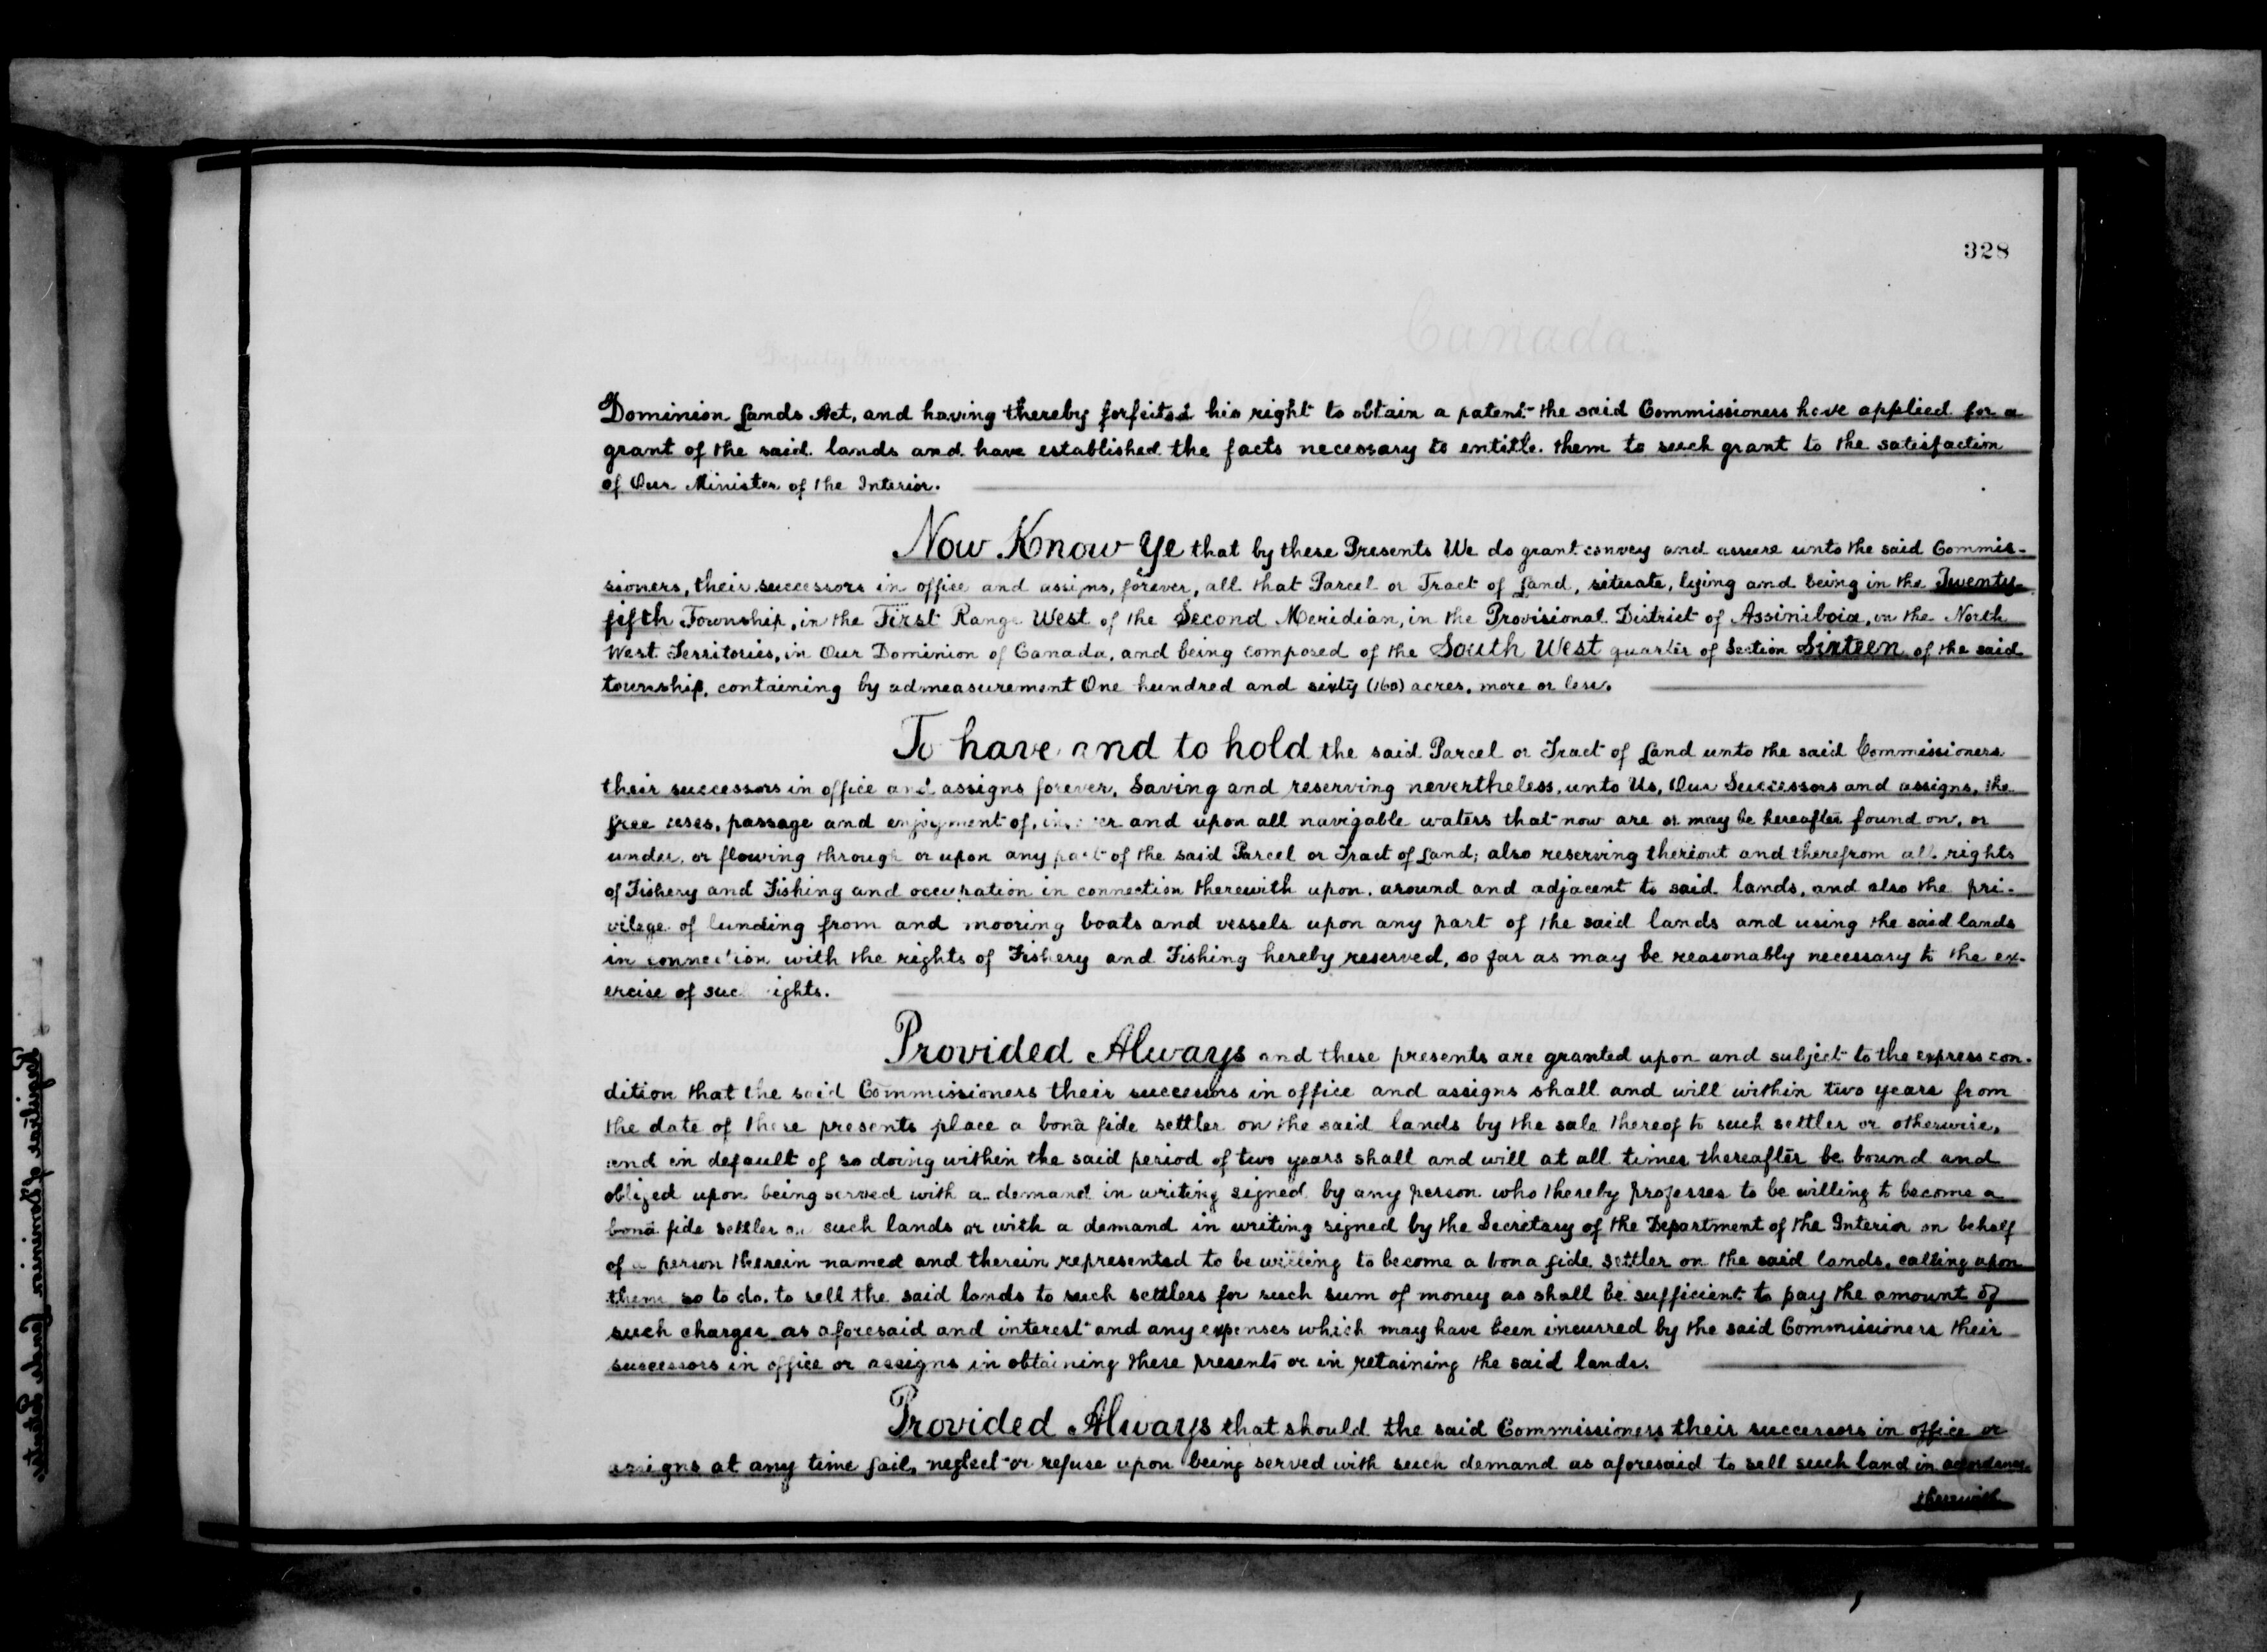 328
Dominion Lands Act, and having thereby forfeited his right to obtain a patent the said Commissioners have applied for a
grant of the said lands and have established the facts necessary to entitle them to such grant to the satisfaction
of Our Minister of the Interior.
Now Know Ye that by these Presents We do grant convey and assure unto the said Commis-
sioners, their successors in office and assigns, forever, all that Parcel or Tract of Land, situate, lying and being in the Twenty
fifth Township, in the First Range West of the Second Meridian, in the Provisional District of Assiniboia, in the North
West Territories, in Our Dominion of Canada, and being composed of the South West quarter of Section Sixteen of the said
township, containing by admeasurement One hundred and sixty (160) acres, more or less.
To have and to hold the said Parcel or Tract of Land unto the said Commissioners
their successors in office and assigns forever, Saving and reserving nevertheless, unto Us, Our Successors and assigns, the
free uses, passage and enjoyment of, in, over and upon all navigable waters that now are or may be hereafter found on, or
under, or flowing through or upon any part of the said Parcel or Tract of Land; also reserving thereout and therefrom all rights
of Fishery and Fishing and occupation in connection therewith upon, around and adjacent to said lands, and also the pri-
vilege of landing from and mooring boats and vessels upon any part of the said lands and using the said lands
in connection with the rights of Fishery and Fishing hereby reserved, so far as may be reasonably necessary to the ex-
ercise of such rights.
Provided Always and these presents are granted upon and subject to the express con-
dition that the said Commissioners their successors in office and assigns shall and will within two years from
the date of these presents place a bonâ fide settler on the said lands by the sale thereof to such settler or otherwise,
and in default of so doing within the said period of two years shall and will at all times thereafter be bound and
obliged upon being served with a demand in writing signed by any person who thereby professes to be willing to become a
bonâ fide settler on such lands or with a demand in writing signed by the Secretary of the Department of the Interior on behalf
of a person therein named and therein represented to be willing to become a bona fide settler on the said lands, calling upon
them so to do, to sell the said lands to such settlers for such sum of money as shall be sufficient to pay the amount of
such charges as aforesaid and interest and any expenses which may have been incurred by the said Commissioners their
successors in office or assigns in obtaining these presents or in retaining the said lands.
Provided Always that should the said Commissioners their successors in office or
assigns at any time fail, neglect or refuse upon being served with such demand as aforesaid to sell such land in accordance
therewith